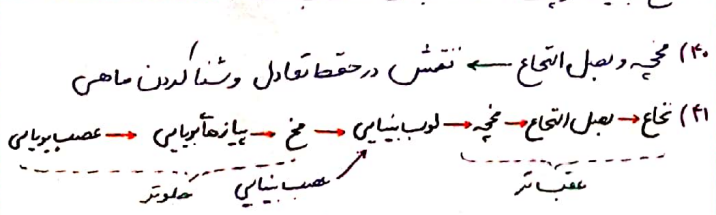 ۴۰) مخچه و بصل النخاع ← نقش در حفظ تعادل و شنا کردن ماهی
۴۱) نخاع → بصل النخاع → مخچه → لوب بینایی → مخ → پیازهای بویایی → عصب بویایی
عقب‌تر عصب بینایی جلوتر